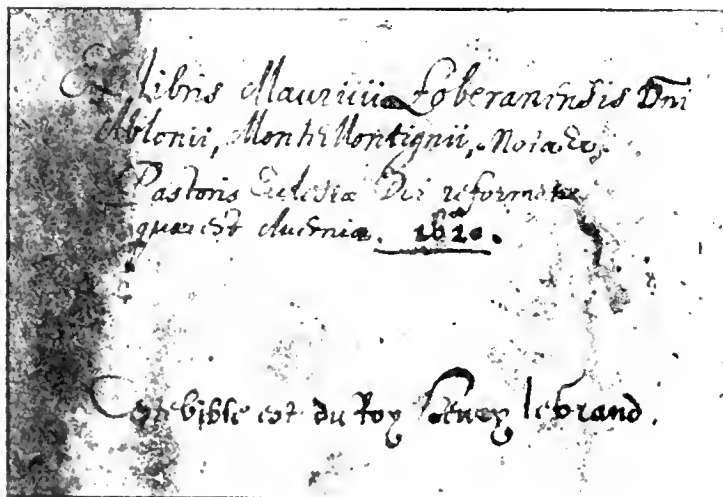 Ex Libris Mauritii Loberaninsis Dni
Ablonii, Montis Montignii,
Pastoris Eclesiæ Dei reformatæ
quæ est 1620.
Ceste bible est du Roy Henry le grand.